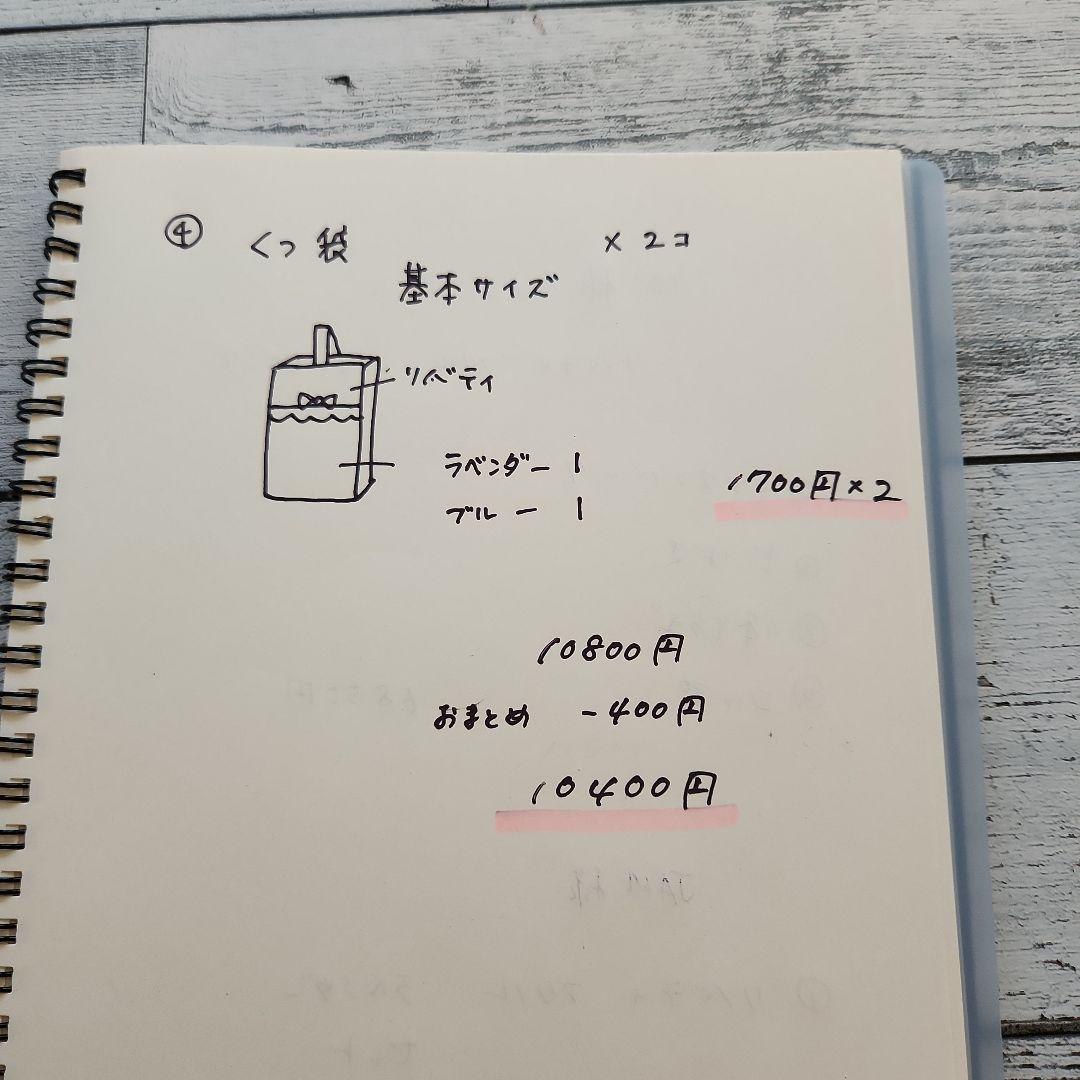 ④ くつ袋 × 2コ
基本サイズ
リバティ
ラベンダー 1
ブルー 1
1700円×2
10800円
おまとめ -400円
10400円